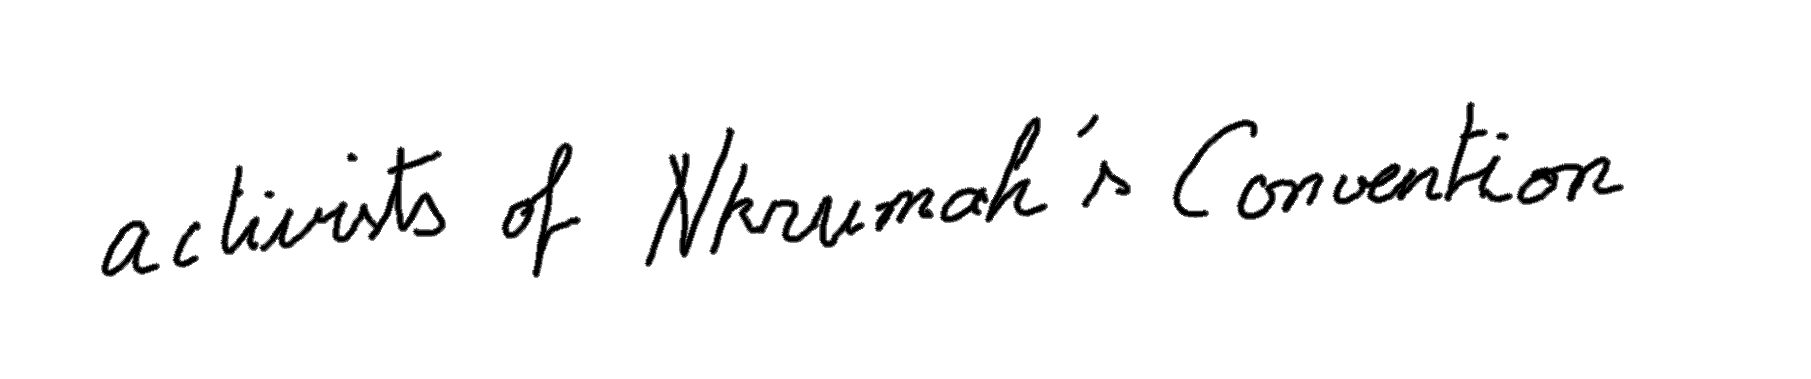 activists of Nkrumah's Convention